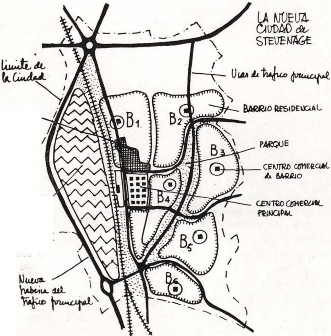 LA NUEVA
CIUDAD DE
STEVENAGE
Límite de
la Ciudad
Vías de tráfico principal
BARRIO RESIDENCIAL
PARQUE
CENTRO COMERCIAL
de BARRIO
CENTRO COMERCIAL
PRINCIPAL
B1
B2
B3
B4
B5
B6
Nueva
del
tráfico principal